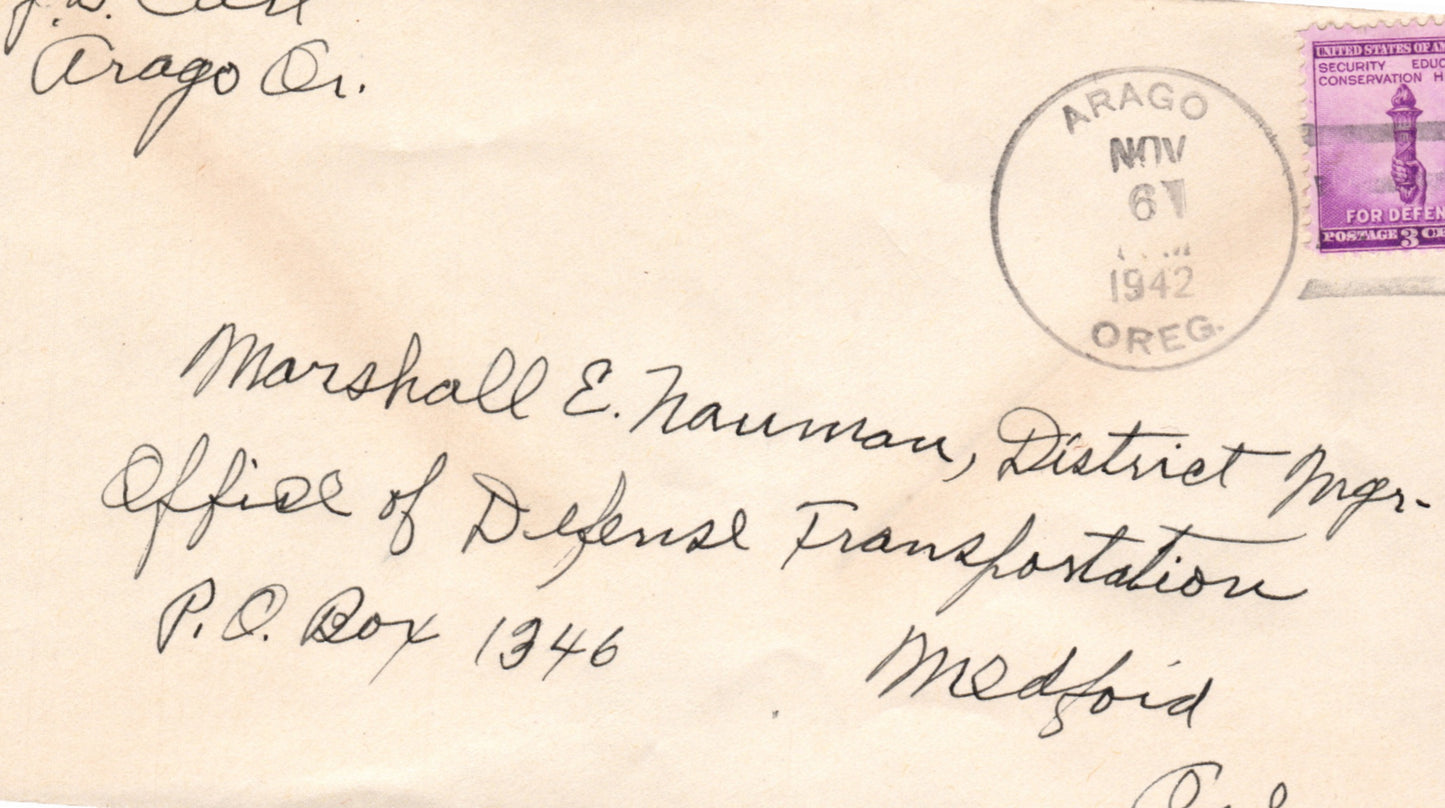 J. D. Carl
Arago Or.
ARAGO
NOV
6
1942
OREG.
UNITED STATES OF
SECURITY EDUC
CONSERVATION H
FOR DEFEN
POSTAGE 3 CE
Marshall E. Nauman, District Mgr-
Office of Defense Transportation
P.O. Box 1346
Medford